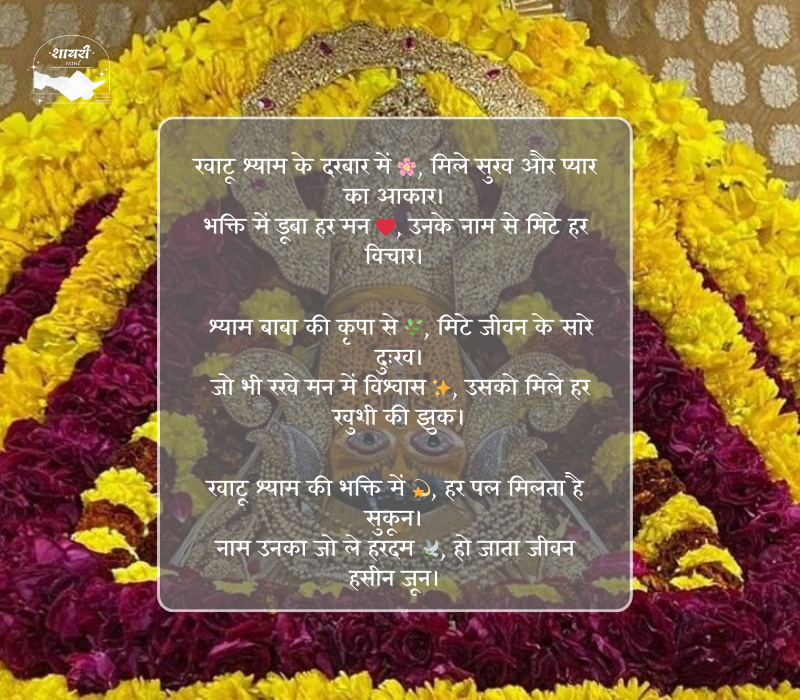 शायरी
खाटू श्याम के दरबार में🌸, मिले सुख और प्यार
का आकार।
भक्ति में डूबा हर मन❤️, उनके नाम से मिटे हर
विचार।
श्याम बाबा की कृपा से🌿, मिटे जीवन के सारे
दुःख।
जो भी रखे मन में विश्वास✨, उसको मिले हर
खुशी की झुक।
खाटू श्याम की भक्ति में💫, हर पल मिलता है
सुकून।
नाम उनका जो ले हरदम🕊️, हो जाता जीवन
हसीन जून।